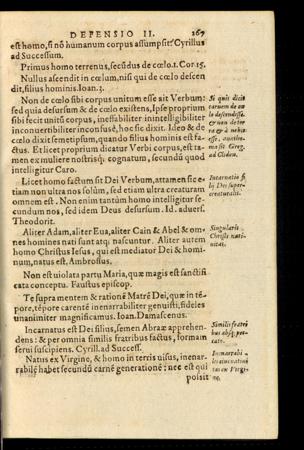 DEFENSIO II. 267
est homo, si nō humanum corpus assumpsit? Cyrillus
ad Successum.
Primus homo terrenus, secūdus de cœlo. 1. Cor. 15.
Nullus ascendit in cœlum, nisi qui de cœlo descen
dit, filius hominis. Ioan. 3.
Non de cœlo sibi corpus unitum esse ait Verbum:
sed quia desursum & de cœlo existens, Ipse proprium
sibi fecit unitū corpus, ineffabiliter inintelligibiliter
inconvertibiliter inconfusè, hoc sic dixit. Ideo & de
cœlo dixit semetipsum, quando filius hominis est fa-
ctus. Et licet proprium dicatur Verbi corpus, est ta-
men ex muliere nostrisq́; cognatum, secundū quod
intelligitur Caro.
Si quis dicit
carnem de cœ
lo descendisse.
&c.
Greg.
ad Clidon.
Licet homo factum sit Dei Verbum, attamen sic e-
tiam non ultra nos solùm, sed etiam ultra creaturam
omnem est. Non enim tantùm homo intelligitur se-
cundum nos, sed idem Deus desursum. Id. advers.
Theodorit.
Incarnatio fi
lij Dei super-
creaturalis.
Aliter Adam, aliter Eua, aliter Cain & Abel & om-
nes homines nati sunt atq́; nascuntur. Aliter autem
homo Christus Iesus, qui est mediator Dei & homi-
num, natus est. Ambrosius.
Singularis
Christi nati-
uitas.
Non est uiolata partu Maria, quæ magis est sanctifi
cata conceptu. Faustus episcop.
Te supra mentem & rationē Matrē Dei, quæ in tē-
pore, tēpore carentē inenarrabiliter genuisti, fideles
unanimiter magnificamus. Ioan. Damascenus.
Incarnatus est Dei filius, semen Abraæ apprehen-
dens: & per omnia similis fratribus factus, formam
serui suscipiens. Cyrill. ad Success.
Similis fratri
bus absq́; pec-
cato.
Natus ex Virgine, & homo in terris uisus, inenar-
rabilē habet secundū carnē generationē: nec est qui
possit
Inenarrabi-
lis
ne.